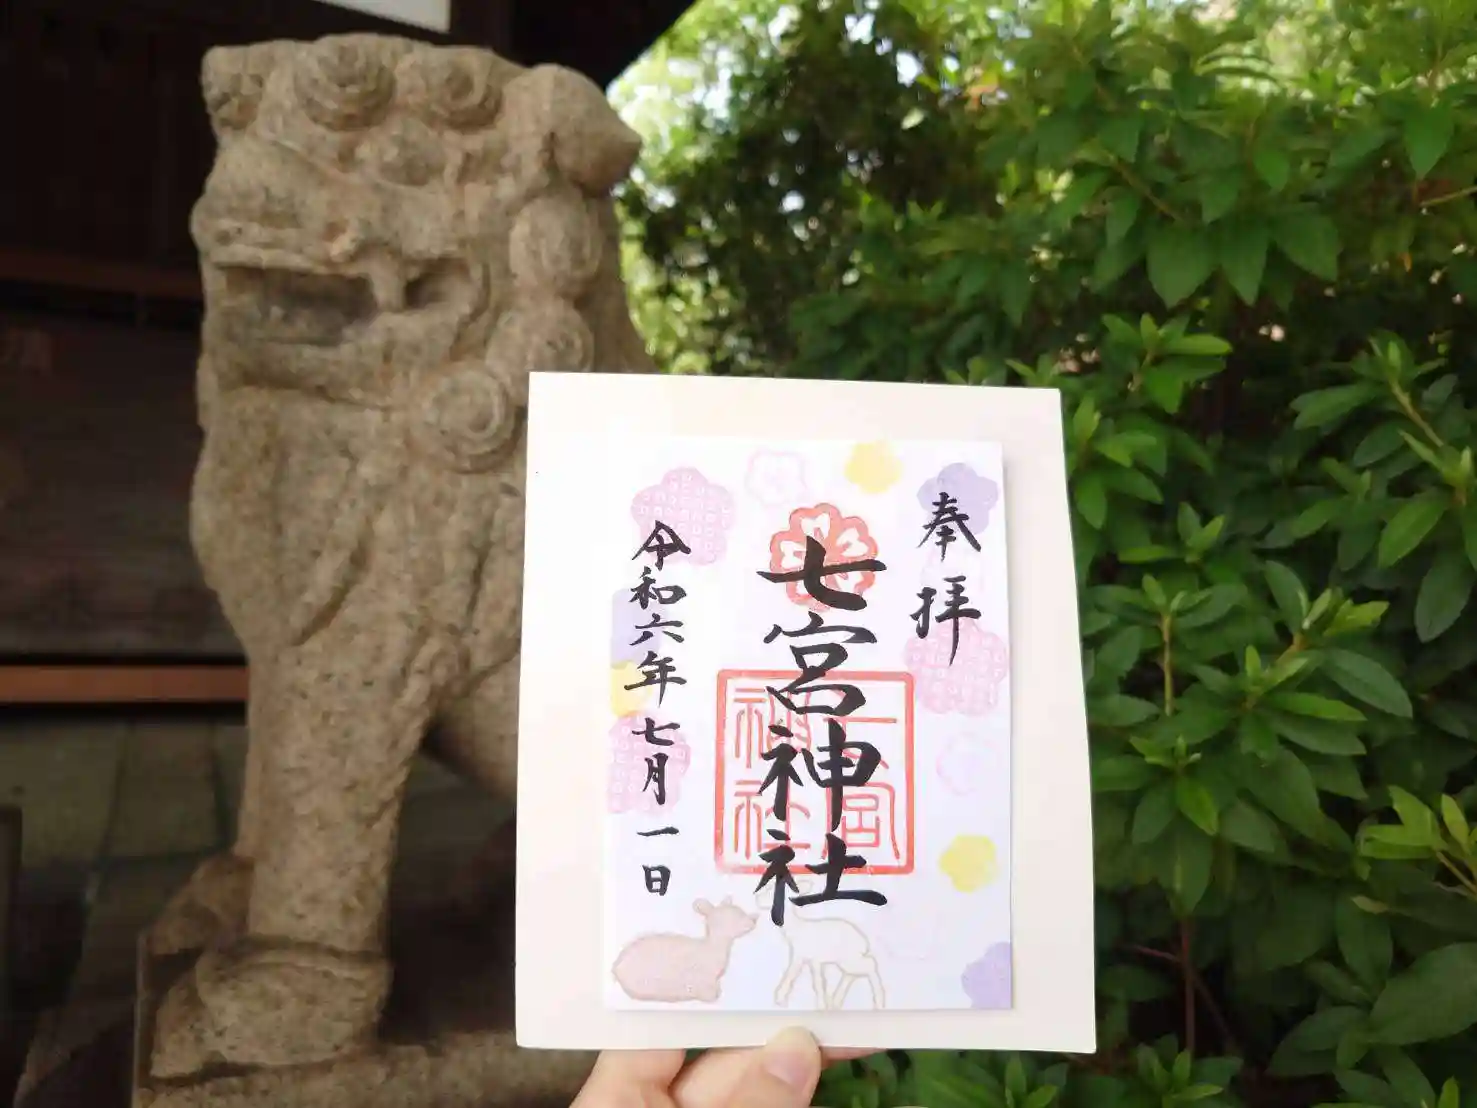 奉拝
七宮神社
七宮
神社
令和六年七月一日